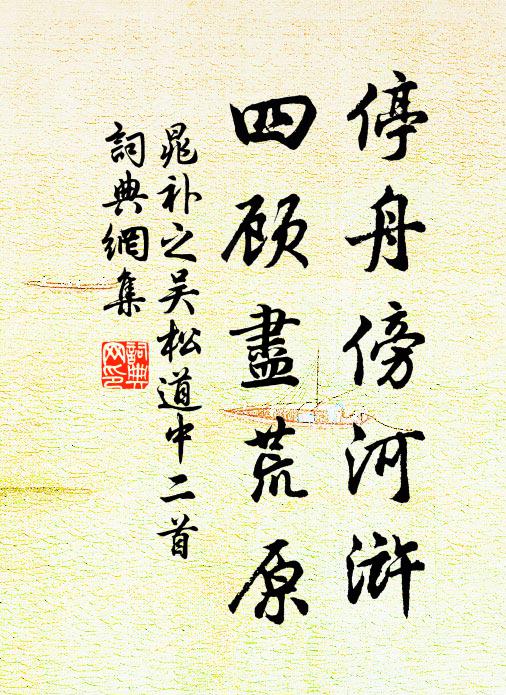 停舟傍河滸
四顾盡荒原
晁补之吴松道中二首
詞典網集
詞典
网印